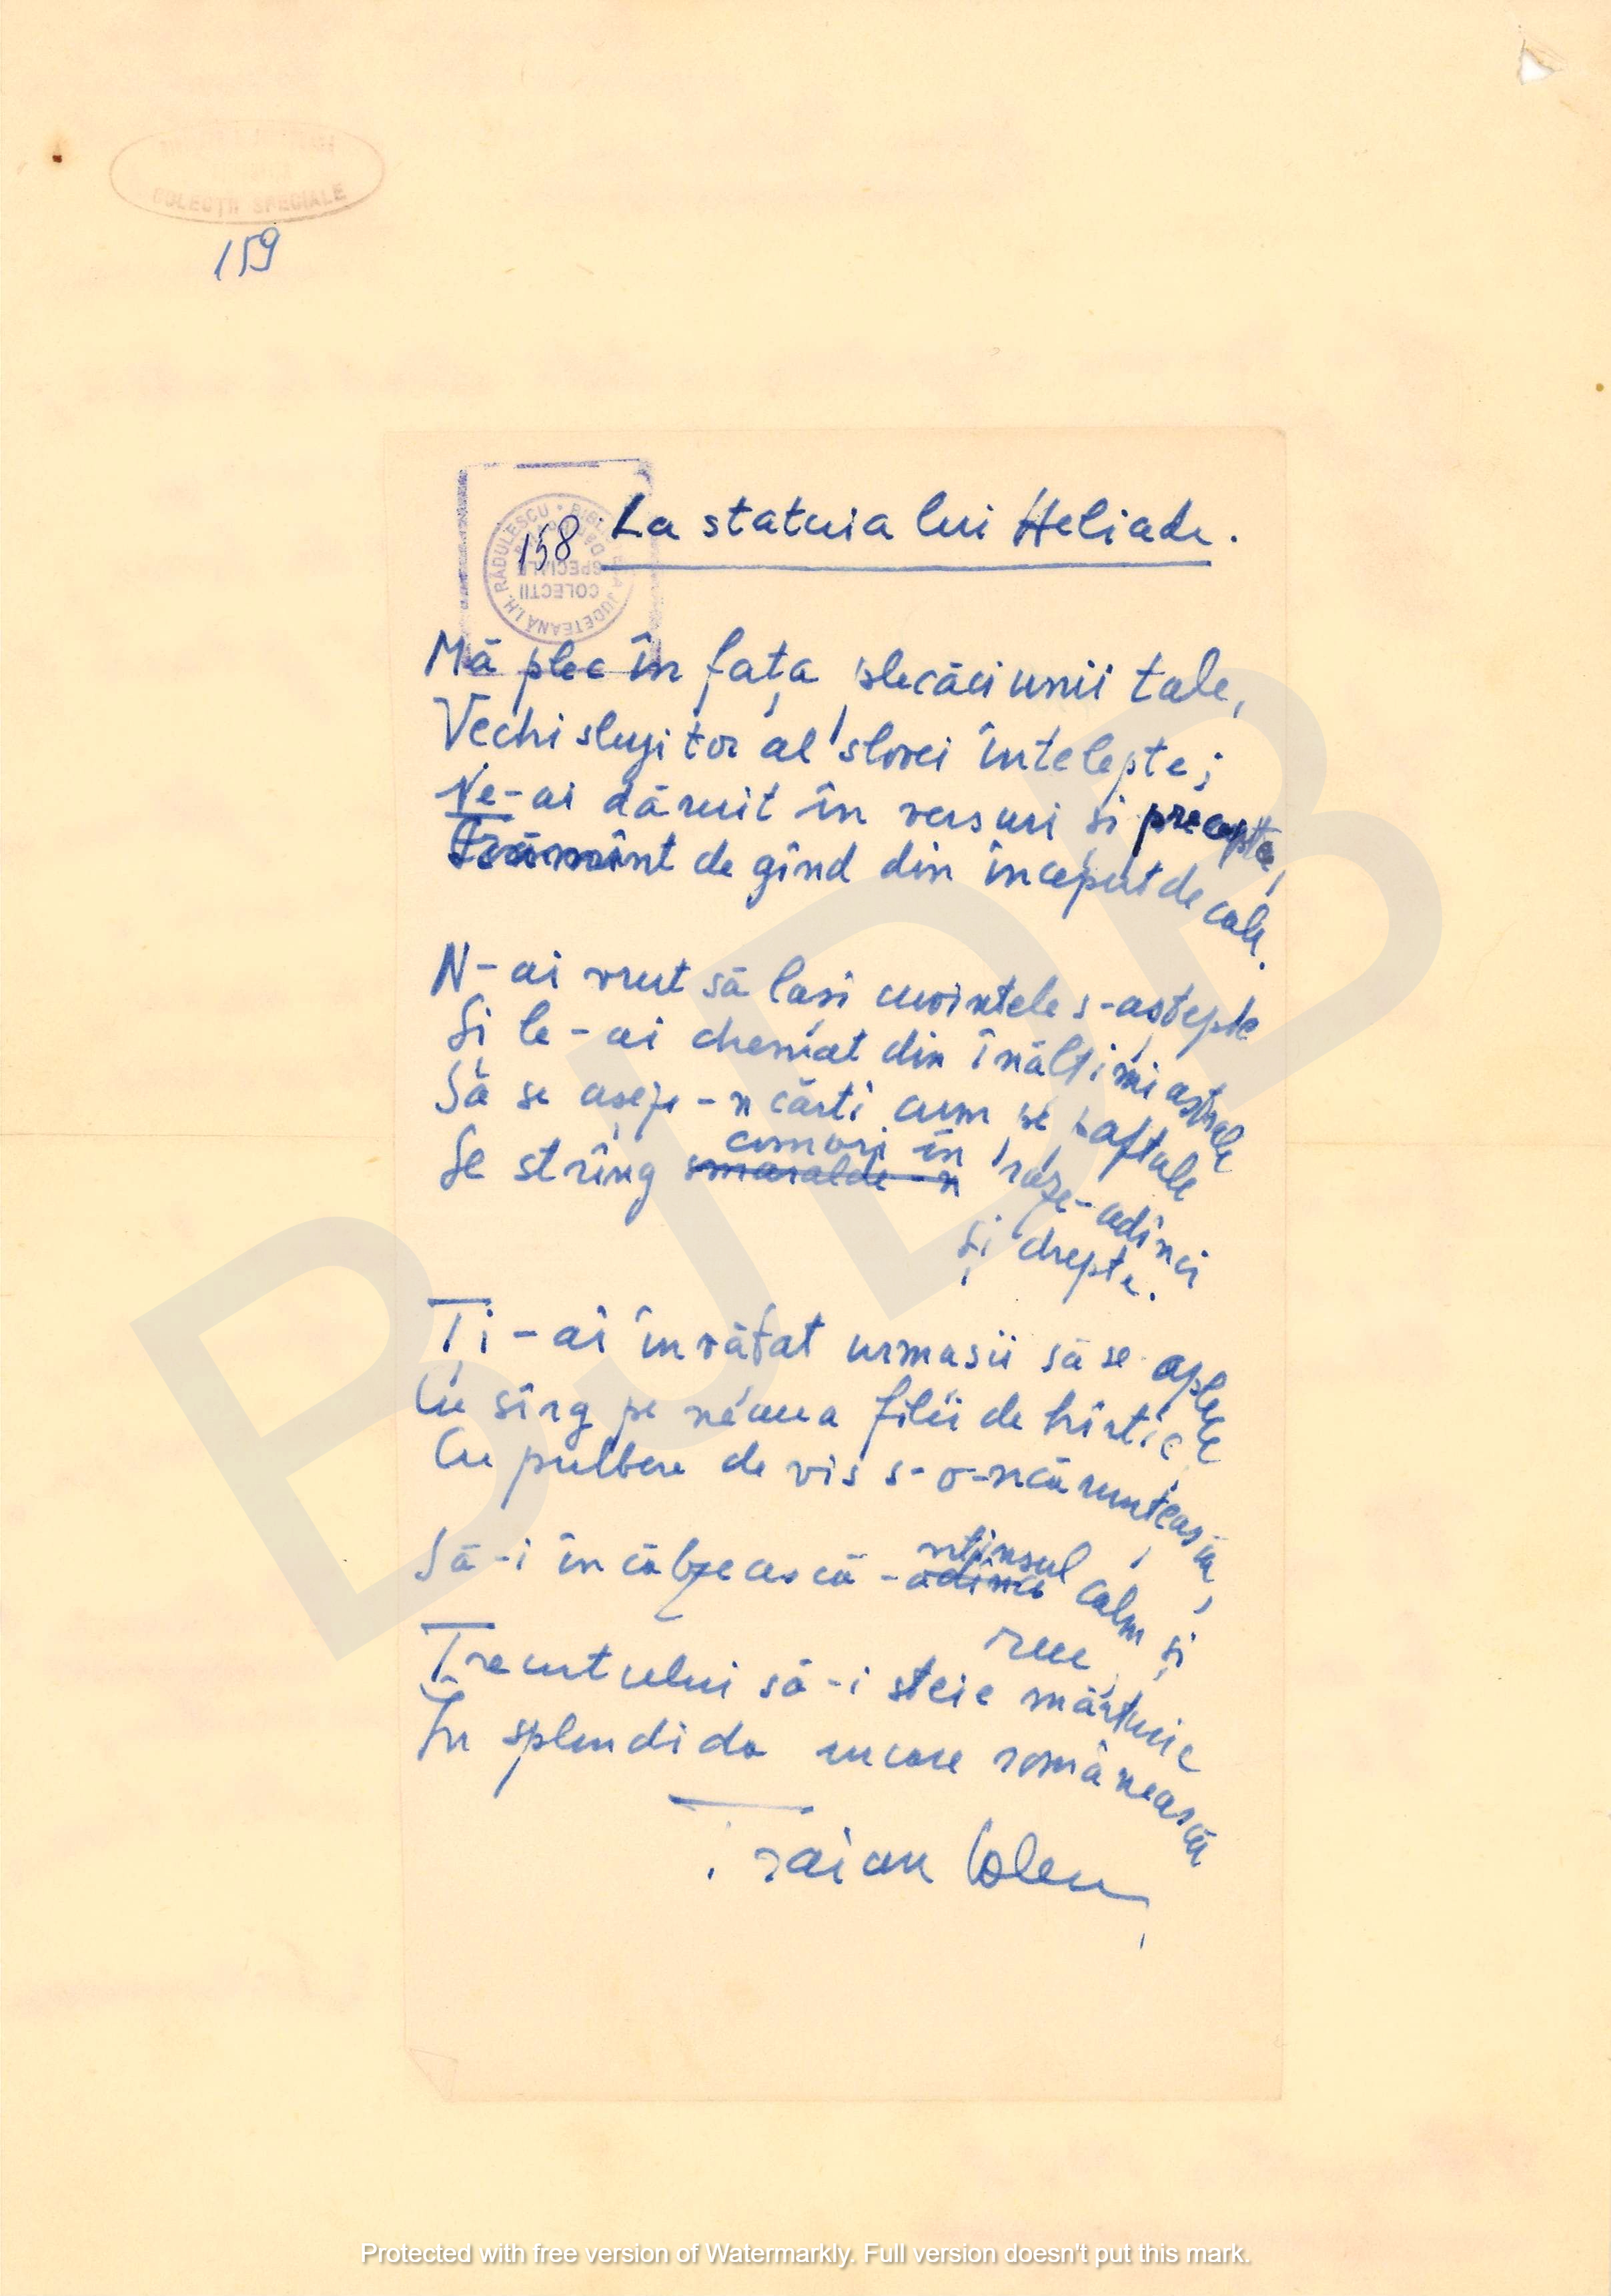 COLECȚII SPECIALE
159
158
BIBL JUDEȚEANĂ I.H. RĂDULESCU
COLECȚII
SPECIALE
La statuia lui Heliade.
Mă plec în fața plecăciunii tale,
Vechi slujitor al slovei înțelepte;
Ne-ai dăruit în versuri și precepte,
Frămînt de gînd din început de cale.
N-ai vrut să lași cuvintele s-aștepte
Și le-ai chemat din înălțimi astrale
Să se așeze-n cărți cum pe paftale
Se string smaralde-n comori în raze-adînci
și drepte.
Ți-ai învățat urmașii să se aplece
Cu sîrg pe neaua filii de hîrtie,
Cu pulbere de vis s-o-ncărunțească,
Să-i încălzească-adînc
-ntinsul calm și
rece,
Trecutului să-i steie mărturie
În splendida ucare românească
Traian Coleu
BJDB
Protected with free version of Watermarkly. Full version doesn't put this mark.